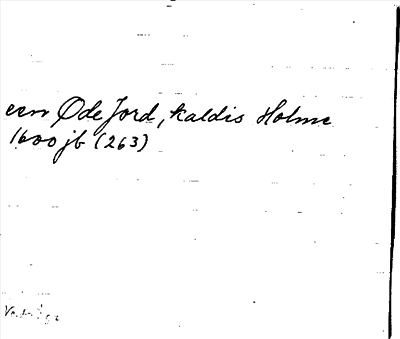 een Øde Jord, kaldis Holme
1600 jb (263)